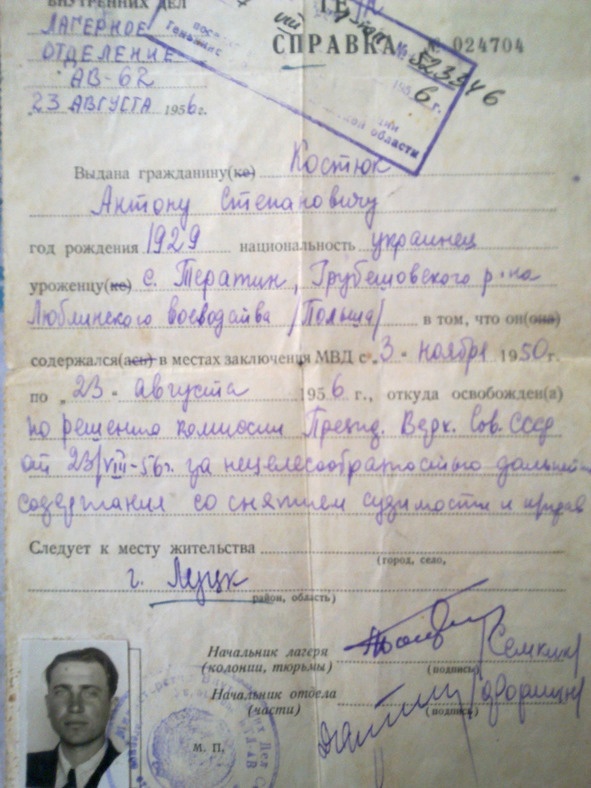 ВНУТРЕННИХ ДЕЛ
ЛАГЕРНОЕ
ОТДЕЛЕНИЕ
АВ-62
"23 АВГУСТА 1956 г.
СПРАВКА № 024704
№ 523946
195 6 г.
области
Выдана гражданину(ке) Костюк
Антону Степановичу
год рождения 1929 национальность украинец
уроженцу(ке) с. Тератин, Грубешовского р-на
Люблинского воеводства /Польша/ в том, что он(она)
содержался(ась) в местах заключения МВД с „3" ноября 1950 г.
по „23" августа 1956 г., откуда освобожден(а)
по решению комиссии Презид. Верх. Сов. СССР
от 23/VIII-56 г. за нецелесообразностью дальнейш
содержания со снятием судимости и
Следует к месту жительства
(город, село,
г. Луцк
район, область)
Начальник лагеря
(колонии, тюрьмы)
(подпись)
Начальник отдела
(части)
(подпись)
М. П.